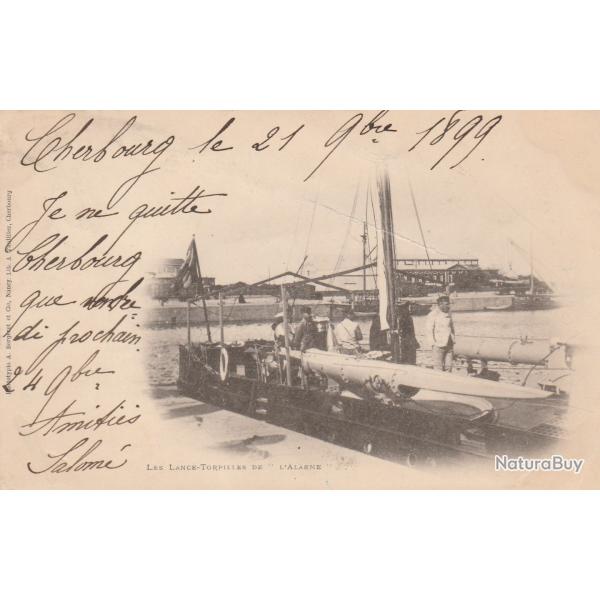 Cherbourg le 21 9bre 1899
Je ne quitte
Cherbourg
que vendre
di prochain
24 9bre
Amitiés
Salomé
LES LANCE-TORPILLES DE " L'ALARME "
Phototypie A. Bergeret et Cie, Nancy
Cherbourg
NaturaBuy